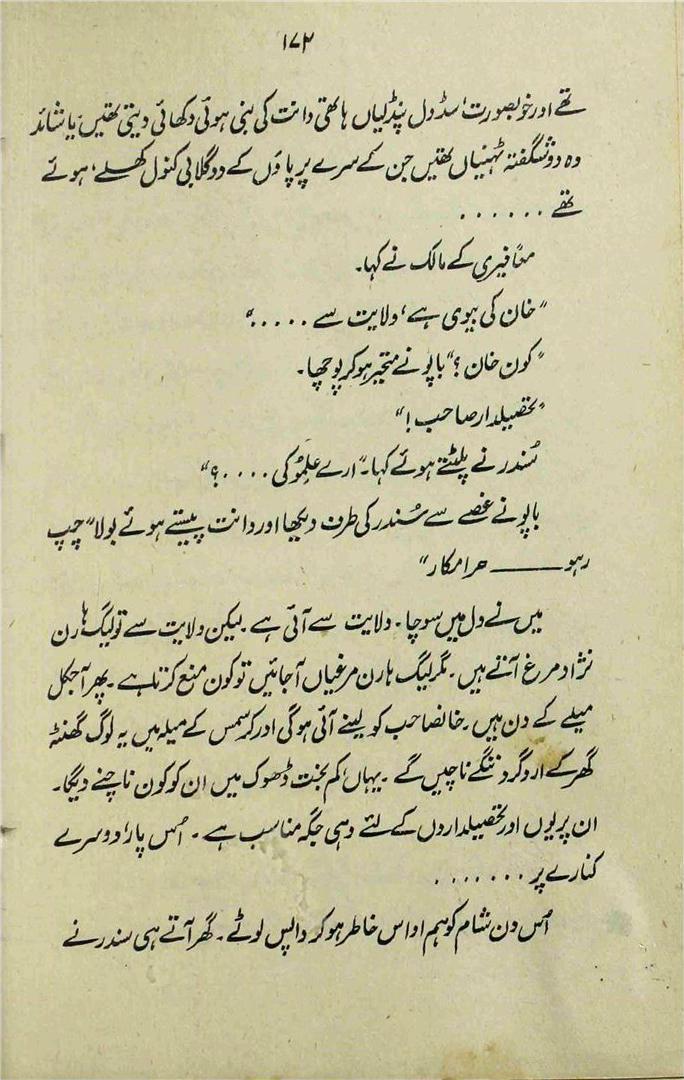 ۱۷۲
تھے اور خوبصورت، سڈول پنڈلیاں ہاتھی دانت کی بنی ہوئی دکھائی دیتی تھیں، یا شائد
وہ دو شگفتہ ٹہنیاں تھیں جن کے سرے پر پاؤں کے دو گلابی کنول کھلے، ہوئے
تھے ......
معاً فیری کے مالک نے کہا۔
"خان کی بیوی ہے، ولایت سے ....."
"کون خان؟" باپو نے متحیر ہو کر پوچھا۔
"تحصیلدار صاحب!"
سُندر نے پلٹتے ہوئے کہا۔ "ارے علِمُو کی ....؟"
باپو نے غصے سے سُندر کی طرف دیکھا اور دانت پیستے ہوئے بولا "چپ
رہو ——— حرامکار"
میں نے دل میں سوچا۔ ولایت سے آئی ہے۔ لیکن ولایت سے تو لیگ ہارن
نژاد مرغ آتے ہیں۔ مگر لیگ ہارن مرغیاں آ جائیں تو کون منع کرتا ہے۔ پھر آجکل
میلے کے دن ہیں۔ خانصاحب کو لینے آئی ہوگی اور کرسمس کے میلہ میں یہ لوگ گھنٹہ
گھر کے اردگرد ننگے ناچیں گے۔ یہاں، کم بخت ڈھوک میں ان کو کون ناچنے دیگا۔
ان پریوں اور تحصیلداروں کے لئے وہی جگہ مناسب ہے۔ اُس پار، دوسرے
کنارے پر .......
اُس دن شام کو ہم اداس خاطر ہو کر واپس لوٹے۔ گھر آتے ہی سندر نے